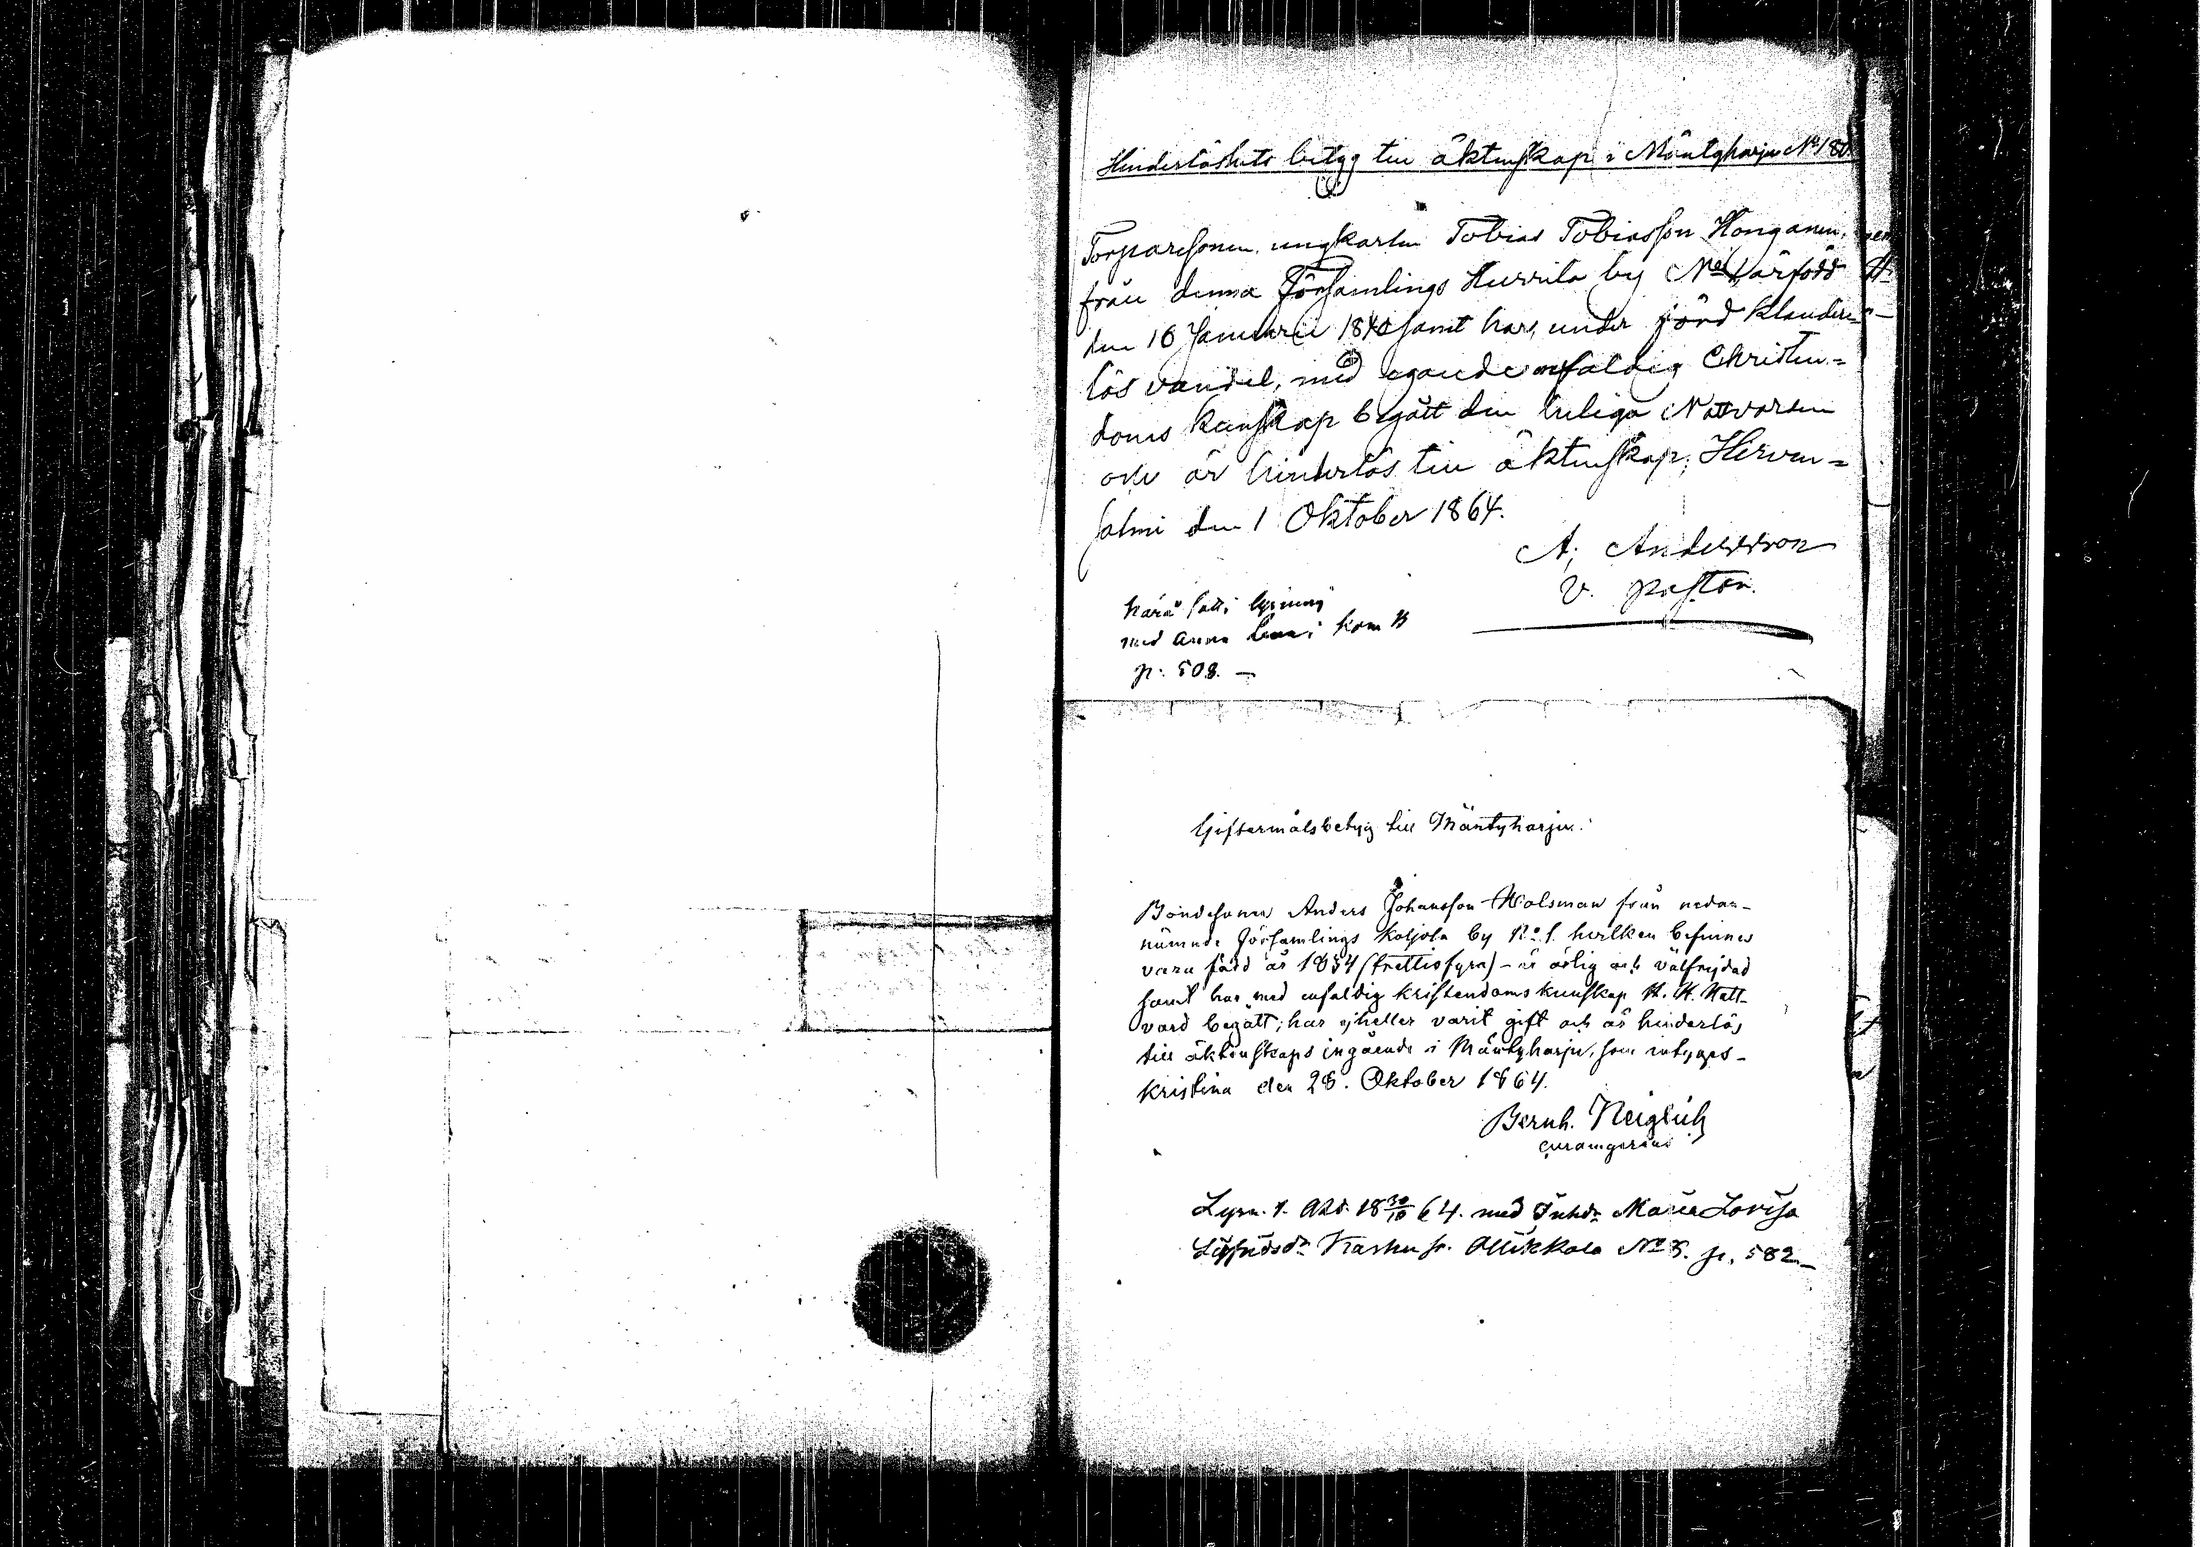 Hinderlöshets betyg till äktenskap i Mäntyharju No 180
Torparesonen, ungkarlen Tobias Tobiasson Honganen,
från denna Församlings Hurrila by No 1, är född
den 16 Januarii 1840 samt har, under förd klander-
lös vandel, med egande enfaldig Christen-
doms kunskap begått den heliga Nattvarden
och är hinderlös till äktenskap; Hirven-
salmi den 1 Oktober 1864.
A. Andersson
V. pastor.
härå lysning
med Anna
p. 508. –
Giftermålsbetyg till Mäntyharju.
Bondesonen Anders Johansson Holsman från nedan-
nämnde Församlings Koljola by No 1. hvilken befinnes
vara född år 1834 (trettiofyra) – är ärlig och välfrejdad
samt har med enfaldig kristendoms kunskap H. H. Natt-
vard begått; har ejheller varit gift och är hinderlös
till äktenskaps ingående i Mäntyharju, som intygas –
Kristina den 28. Oktober 1864.
Bernh. Neiglick
curamgerens
Lysn. 1. 18 30/10 64. med Inhd:r Maria Lovisa
Sigfridsd:r Karhu fr. Ollikkala No 5. p. 582 –